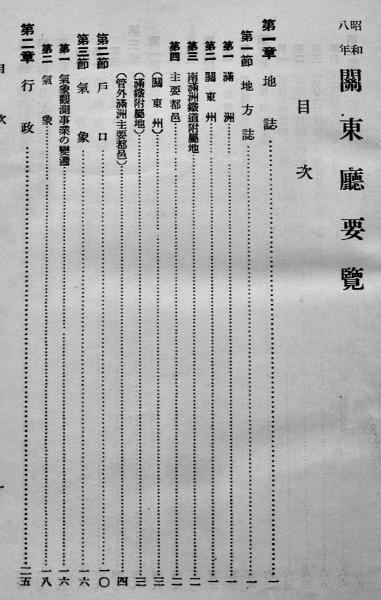 昭和八年 關東廳要覽
目次
第一章 地誌……一
第一節 地方誌……一
第一 滿洲……一
第二 關東州……一
第三 南滿洲鐵道附屬地……二
第四 主要都邑……二
(關東州)……三
(滿鐵附屬地)……三
(管外滿洲主要都邑)……四
第二節 戶口……一〇
第三節 氣象……一六
第一 氣象觀測事業の變遷……一六
第二 氣象……一八
第二章 行政……二五
目次
一